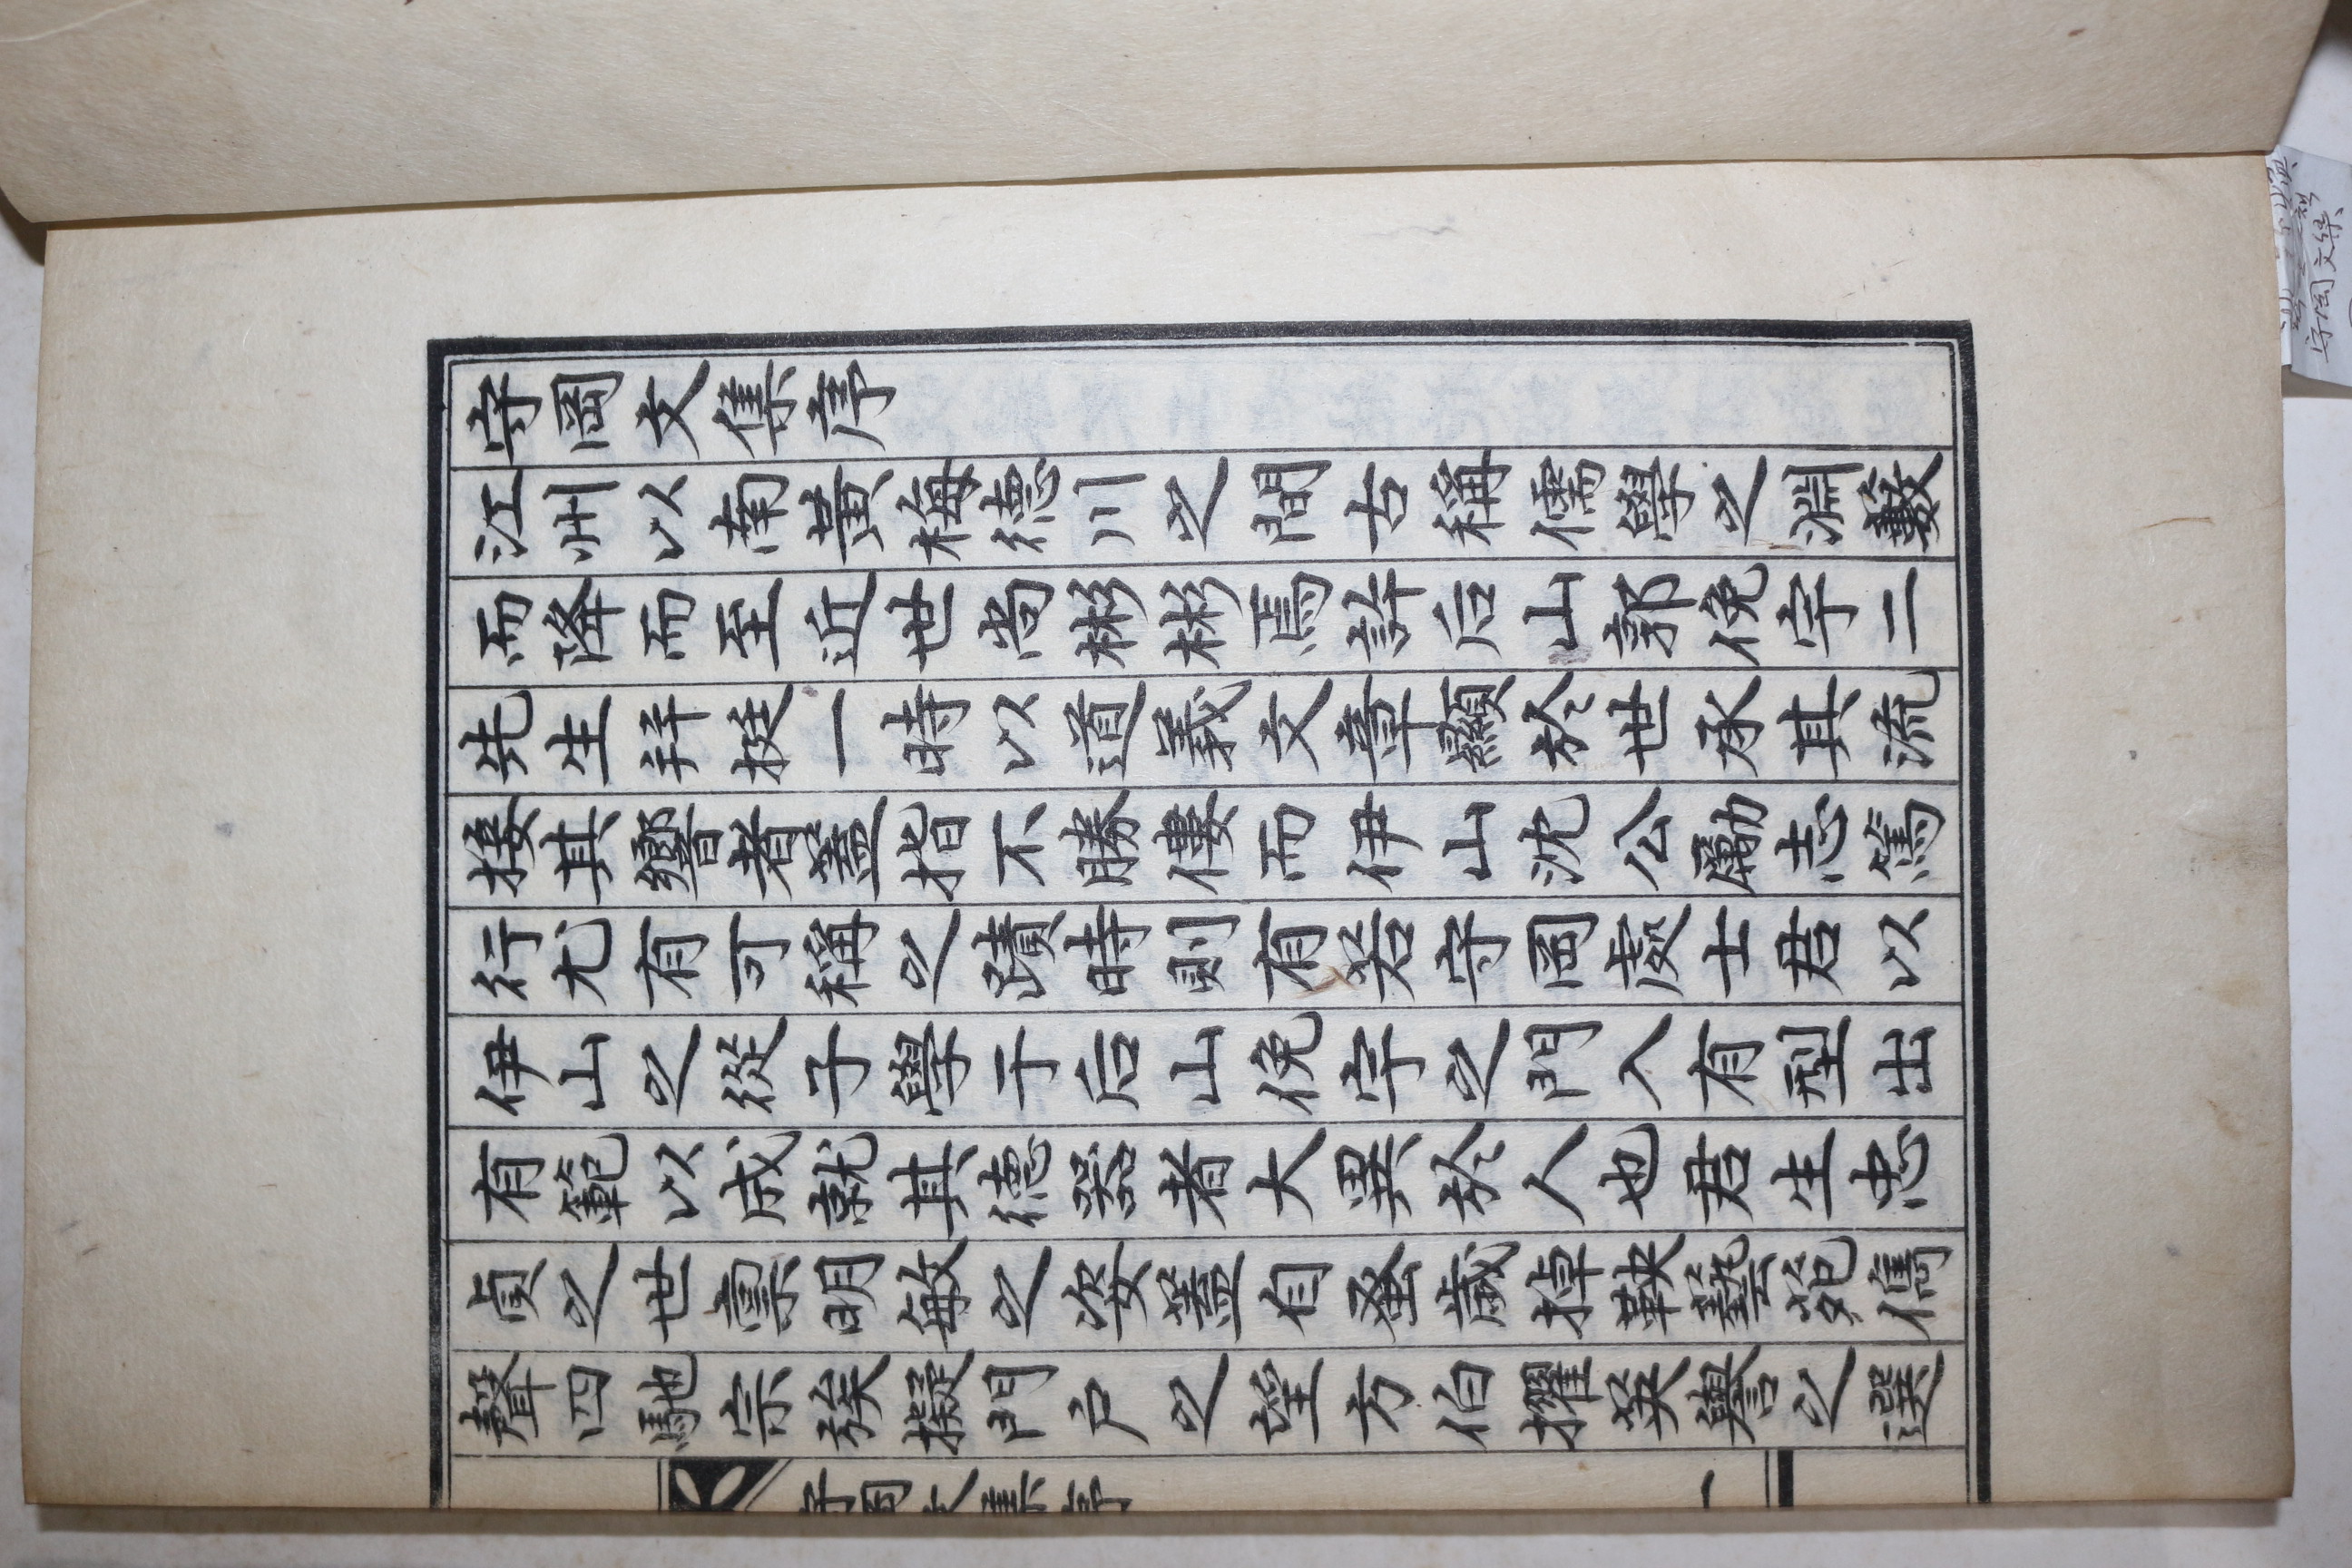 守岡文集序
江州以南黃梅德川之間古稱儒學之淵藪
而降而至近世尚彬彬焉許后山郭俛宇二
先生幷挺一時以道義文章顯於世承其流
接其響者蓋指不勝僂而伊山沈公勵志篤
行尤有可稱之蹟時則有若守岡處士君以
伊山之從子學于后山俛宇之門入有型出
有範以成就其德器者大異於人也君生忠
貞之世稟明敏之姿蓋自蚤歲掉鞅藝苑儁
聲四馳宗族擬門戶之望方伯擢英譽之選
守岡文集序
一
守岡文集